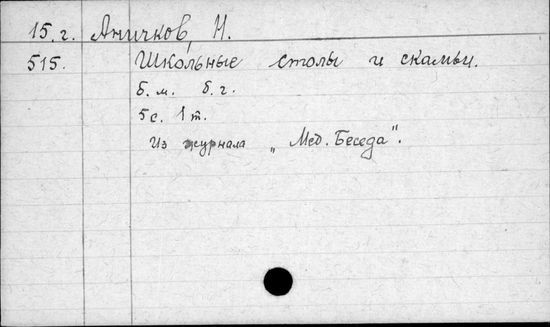 15.г. Аничков, Н.
515. Школьные столы и скамьи.
б.м. б.г.
5с. 1т.
Из журнала „Мед. Беседа".